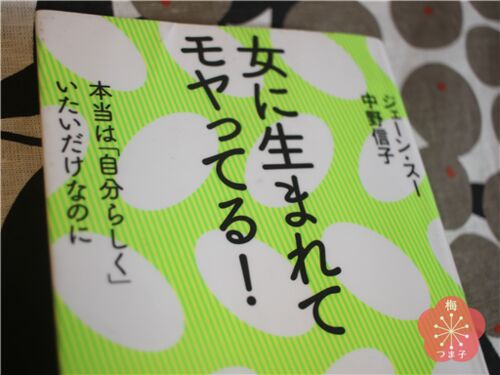 ジェーン・スー
中野信子
女に生まれて
モヤってる！
本当は「自分らしく」
いたいだけなのに
梅
つま子